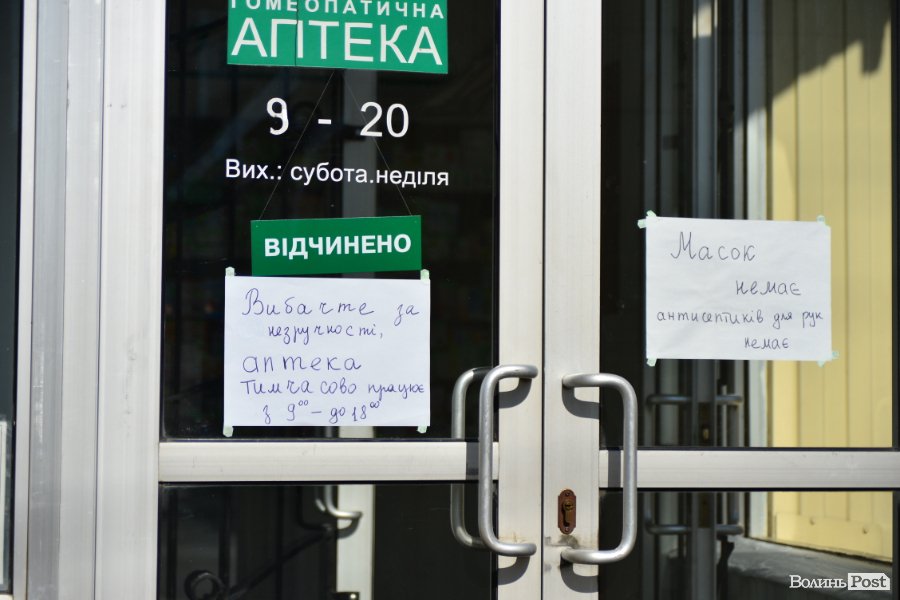 ГОМЕОПАТИЧНА
АПТЕКА
9 - 20
Вих.: субота.неділя
ВІДЧИНЕНО
Вибачте за
незручності,
аптека
тимчасово працює
з 9⁰⁰ – до 18⁰⁰
Масок
немає
антисептиків для рук
немає
Волинь Post